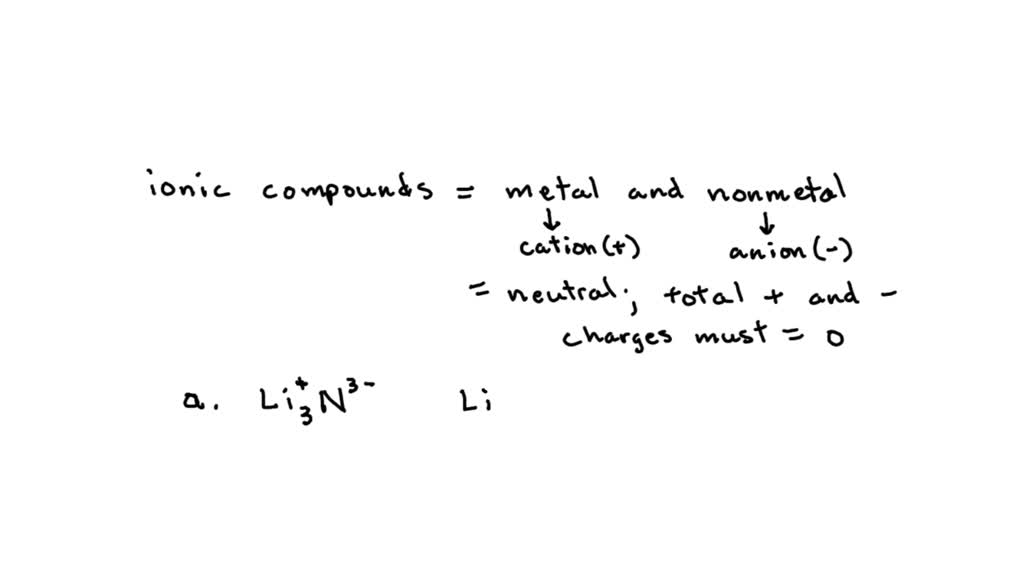 ionic compounds = metal and nonmetal
↓ ↓
cation (+) anion (-)
= neutral; total + and -
charges must = 0
a. Li₃⁺N³⁻ Li